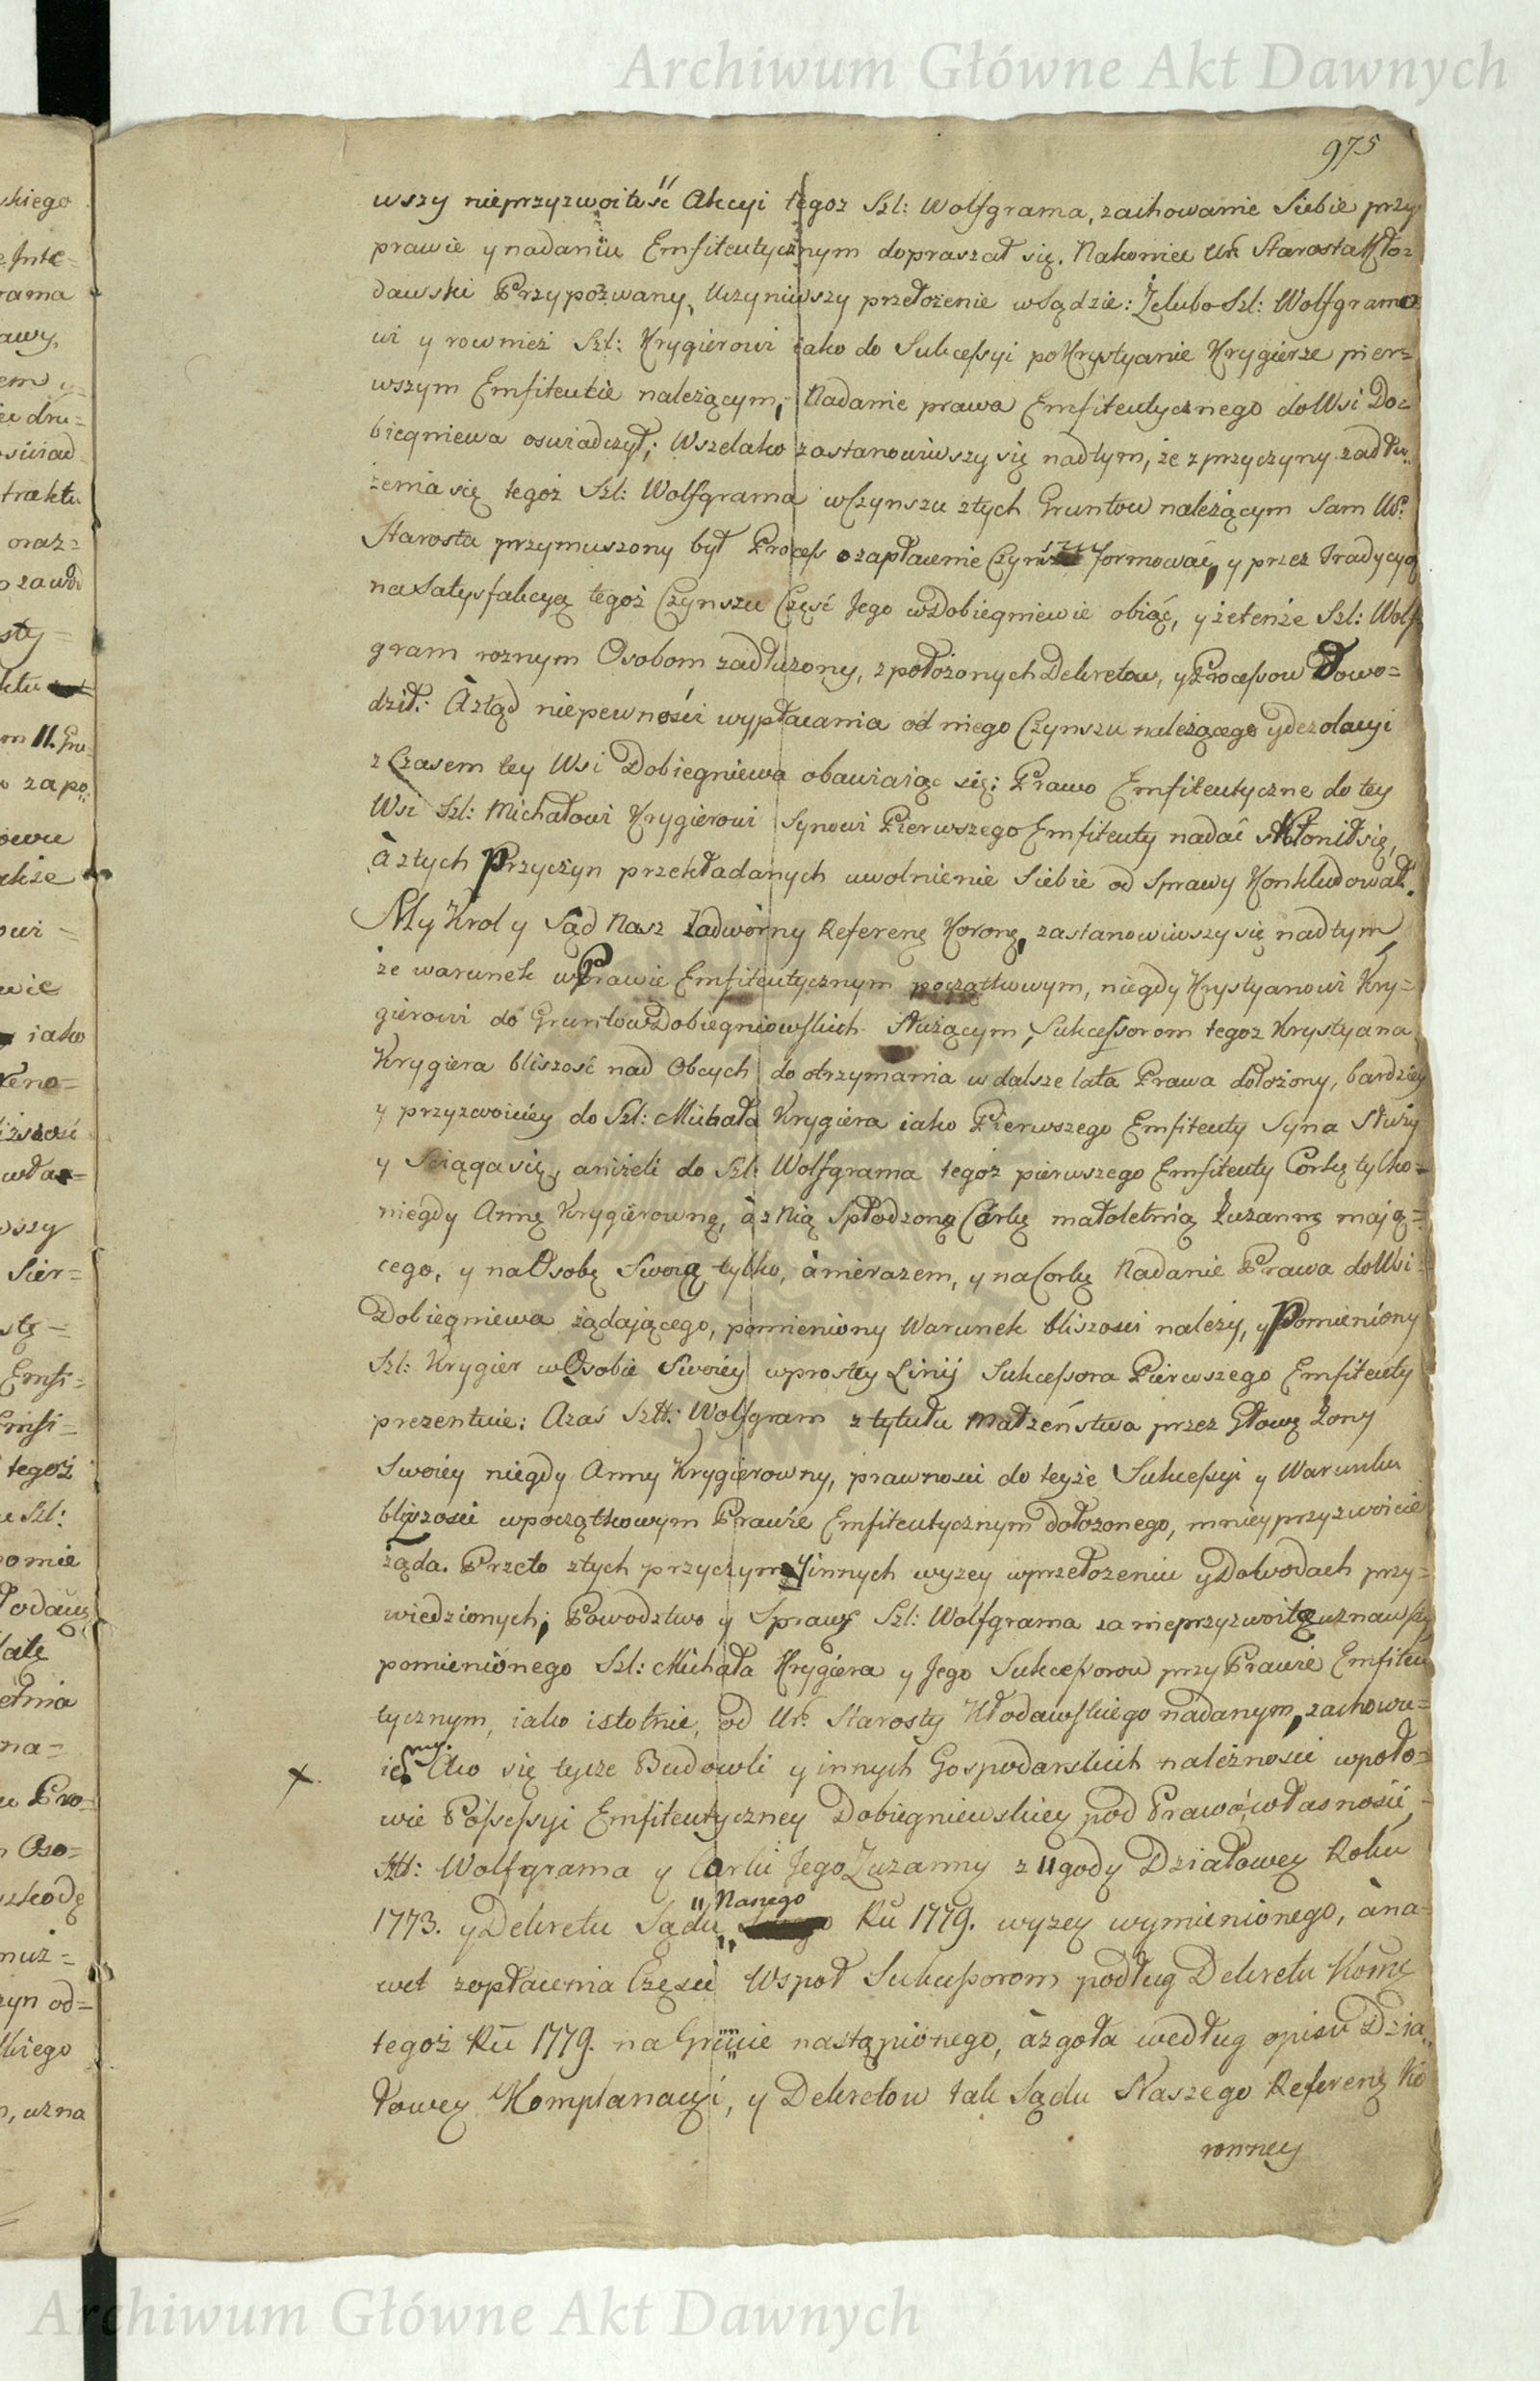 Archiwum Główne Akt Dawnych
975
wszy nieprzyzwoitość Akcyi tegoz Szl: Wolfgrama, zachowanie Siebie przy
prawie y nadaniu Emfiteutycznym dopraszał się. Nakoniec Ur. Starosta Kło=
dawski Przypozwany, Uczyniwszy przełożenie w Sądzie: Że lubo Szl: Wolfgramo=
wi y rownież Szl: Krygierowi iako do Sukcessyi po Krystyanie Krygierze pier=
wszym Emfiteutie należącym, Nadanie prawa Emfiteutycznego do Wsi Do=
biegniewa oswiadczył; Wszelako zastanowiwszy się nadtym, że z przyczyny zadłu=
żenia się tegoż Szl: Wolfgrama w Czynszu z tych Gruntow należącym Sam Ur.
Starosta przymuszony był Process o zapłacenie Czynszu formować, y przez Tradycyą
na Satysfakcyą tegoż Czynszu Część Jego w Dobiegniewie obiąć, y że tenże Szl: Wolf=
gram roznym Osobom zadłużony, z położonych Dekretow, y Processow Dowo=
dził: A ztąd niepewności wypłacania od niego Czynszu należącego y dezolacyi
z Czasem tey Wsi Dobiegniewa obawiaiąc się; Prawo Emfiteutyczne do tey
Wsi Szl: Michałowi Krygierowi Synowi Pierwszego Emfiteuty nadać skłonił się,
à z tych Przyczyn przekładanych uwolnienie Siebie od Sprawy Konkludował.
My Krol y Sąd Nasz Zadworny Referen: Koron:, zastanowiwszy się nadtym
że warunek w Prawie Emfiteutycznym początkowym, niegdy Krystyanowi Kry=
gierowi do Gruntow Dobiegniowskich Służącym, Sukcessorom tegoz Krystyana
Krygiera bliszość nad Obcych do otrzymania w dalsze lata Prawa dołożony, bardziey
y przyzwoiciey do Szl: Michała Krygiera iako Pierwszego Emfiteuty Syna Służy
y Sciąga się, aniżeli do Szl: Wolfgrama tegoż pierwszego Emfiteuty Corkę tylko=
niegdy Annę Krygierownę, à z Nią Spłodzoną Corkę małoletnią Zuzannę mają=
cego, y na Osobę Swoią tylko, à nierazem, y na Corkę Nadanie Prawa do Wsi
Dobiegniewa żądającego, pomieniony Warunek bliszosci należy, y Pomieniony
Szl: Krygier w Osobie Swoiey w prostey Linij Sukcessora Pierwszego Emfiteuty
prezentuie; A zaś Szll: Wolfgram z tytułu Małżeństwa przez Głowę Żony
Swoiey niegdy Anny Krygierowny, prawnosci do teyże Sukcessyi y Warunku
bliższosci w początkowym Prawie Emfiteutycznym dołożonego, mniey przyzwoicie
żąda. Przeto z tych przyczyn y innych wyzey w przełożeniu y Dowodach przy=
wiedzionych; Powodztwo y Sprawę Szl: Wolfgrama za nieprzyzwoitą uznawszy
pomienionego Szl: Michała Krygiera y Jego Sukcessorow przy Prawie Emfiteu
tycznym, iako istotnie, od Ur. Starosty Kłodawskiego nadanym, zachowu=
iemy. Co się tycze Budowli y innych Gospodarskich należnosci w poło=
wie Possessyi Emfiteutyczney Dobiegniewskiey pod Prawo, własność,
Szl: Wolfgrama y Corki Jego Zuzanny z ugody Działowey Roku
1773. y Dekretu Sądu Naszego Ru 1779. wyzey wymienionego, à na=
wet zopłacenia Części Wspoł Sukcessorom podług Dekretu Kom:
tegoż Ru 1779. na Gruncie nastąpionego, àzgoła według opisu Dzia=
łowey Komplanacyi, y Dekretow tak Sądu Naszego Referen: Ko
ronney
Archiwum Główne Akt Dawnych